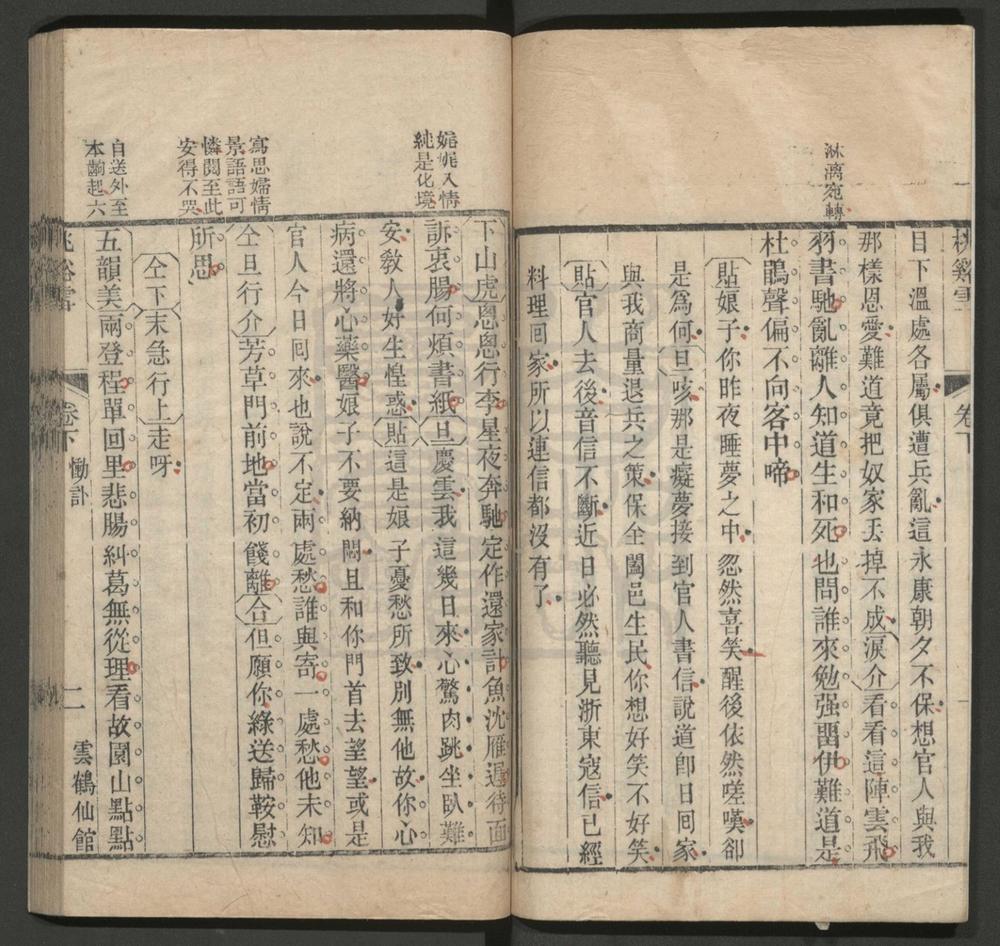 淋漓宛轉
目下溫處各屬俱遭兵亂這永康朝夕不保想官人與我
那樣恩愛難道竟把奴家丟掉不成淚介看看這陣雲飛
羽書馳亂離人知道生和死也問誰來勉强畱伊難道是
杜鵑聲偏不向客中啼
貼娘子你昨夜睡夢之中忽然喜笑醒後依然嗟嘆卻
是爲何旦咳那是癡夢接到官人書信說道卽日囘家
與我商量退兵之策保全闔邑生民你想好笑不好笑
貼官人去後音信不斷近日必然聽見浙東寇信已經
料理囘家所以連信都沒有了
桃谿雪
卷下
娓娓入情
純是化境
寫思婦情
景語語可
憐閱至此
安得不哭
自送外至
本齣起六
下山虎悤悤行李星夜奔馳定作還家計魚沈雁遲待面
訴衷腸何煩書紙旦慶雲我這幾日來心驚肉跳坐臥難
安敎人好生惶惑貼這是娘子憂愁所致別無他故你心
病還將心藥醫娘子不要納悶且和你門首去望望或是
官人今日囘來也說不定兩處愁誰與寄一處愁他未知
仝旦行介芳草門前地當初餞離合但願你綠送歸鞍慰
所思
仝下末急行上走呀
五韻美兩登程單回里悲腸糾葛無從理看故園山點點
卷下
慟訃
二
雲鶴仙館